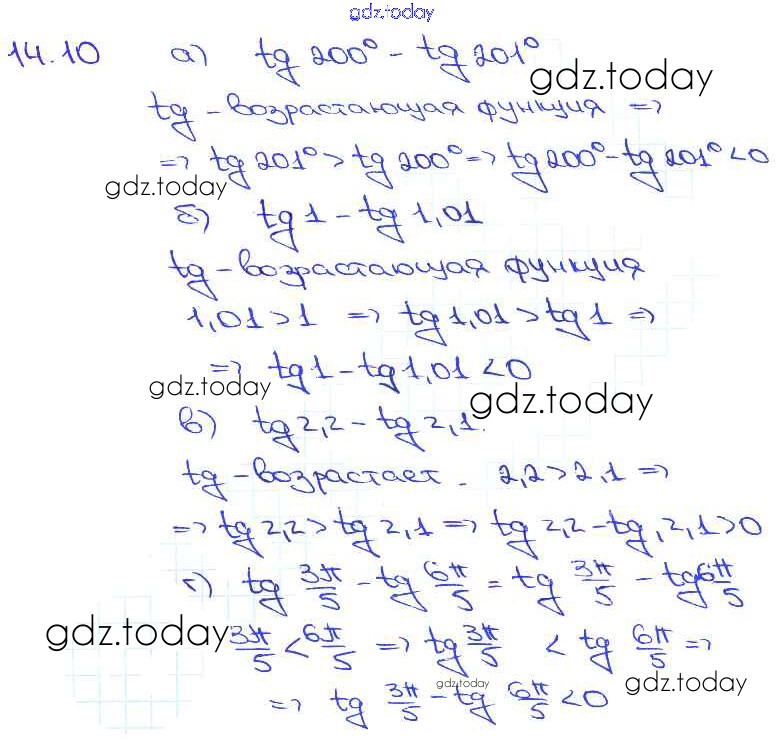 gdz.today
14.10 а) tg 200° - tg 201°
gdz.today
tg - возрастающая функция =>
=> tg 201° > tg 200° => tg 200° - tg 201° < 0
gdz.today
б) tg 1 - tg 1,01
tg - возрастающая функция
1,01 > 1 => tg 1,01 > tg 1 =>
=> tg 1 - tg 1,01 < 0
gdz.today
gdz.today
в) tg 2,2 - tg 2,1.
tg - возрастает. 2,2 > 2,1 =>
=> tg 2,2 > tg 2,1 => tg 2,2 - tg 2,1 > 0
г) tg 3π/5 - tg 6π/5 = tg 3π/5 - tg 6π/5
gdz.today
3π/5 < 6π/5 => tg 3π/5 < tg 6π/5 =>
gdz.today
gdz.today
=> tg 3π/5 - tg 6π/5 < 0